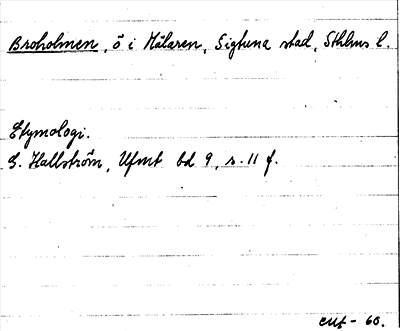 Broholmen, ö i Mälaren, Sigtuna stad, Sthlms l.
Etymologi.
G. Hallström, Ufmt bd 9, s. 11 f.
cut - 60.